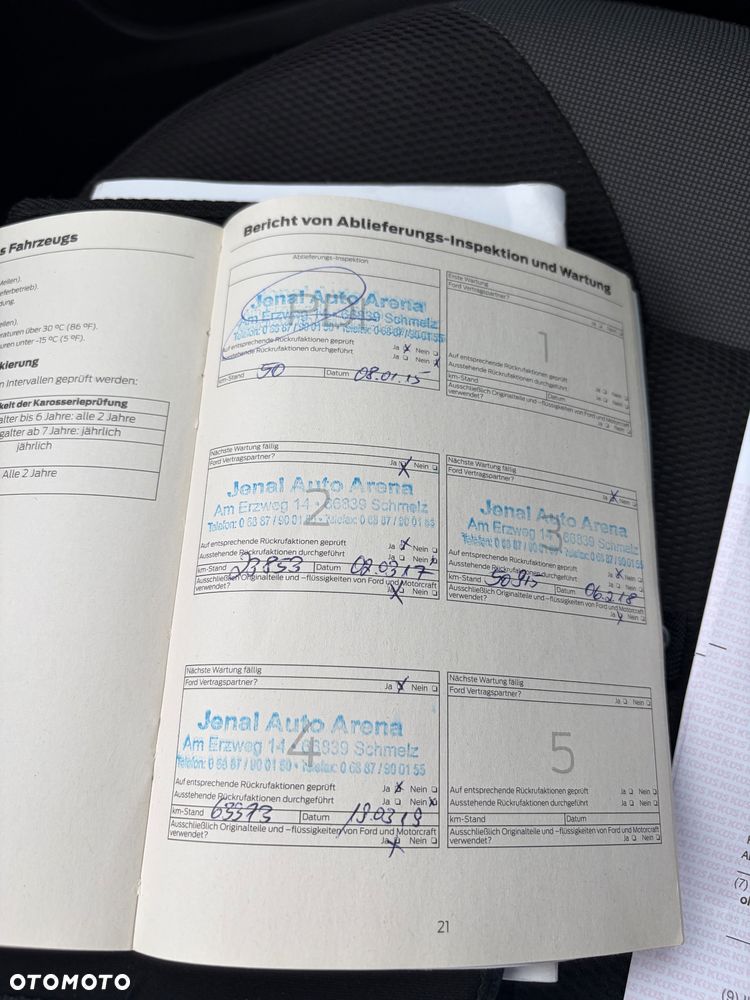 s Fahrzeugs
Meilen).
eferbetrieb).
dung.
eilen).
raturen über 30 ºC (86 ºF).
uren unter -15 ºC (5 ºF).
kierung
n Intervallen geprüft werden:
keit der Karosserieprüfung
alter bis 6 Jahre: alle 2 Jahre
galter ab 7 Jahre: jährlich
jährlich
Alle 2 Jahre
Bericht von Ablieferungs-Inspektion und Wartung
Ablieferungs-Inspektion
Jenal Auto Arena
Am Erzweg 14 • 66839 Schmelz
Telefon: 0 68 87 / 90 01 50 • Telefax: 0 68 87 / 90 01 55
Auf entsprechende Rückrufaktionen geprüft Ja Nein
Ausstehende Rückrufaktionen durchgeführt Ja Nein
km-Stand 50 Datum 08.01.15
Erste Wartung
Ford Vertragspartner?
Ja Nein
1
Auf entsprechende Rückrufaktionen geprüft Ja Nein
Ausstehende Rückrufaktionen durchgeführt Ja Nein
km-Stand Datum
Ausschließlich Originalteile und -flüssigkeiten von Ford und Motorcraft
verwendet? Ja Nein
Nächste Wartung fällig
Ford Vertragspartner? Ja Nein
Jenal Auto Arena
2
Am Erzweg 14 • 66839 Schmelz
Telefon: 0 68 87 / 90 01 50 • Telefax: 0 68 87 / 90 01 55
Auf entsprechende Rückrufaktionen geprüft Ja Nein
Ausstehende Rückrufaktionen durchgeführt Ja Nein
km-Stand 23853 Datum 08.03.17
Ausschließlich Originalteile und -flüssigkeiten von Ford und Motorcraft
verwendet? Ja Nein
Nächste Wartung fällig
Ford Vertragspartner? Ja Nein
Jenal Auto Arena
3
Am Erzweg 14 • 66839 Schmelz
Telefon: 0 68 87 / 90 01 50 • Telefax: 0 68 87 / 90 01 55
Auf entsprechende Rückrufaktionen geprüft Ja Nein
Ausstehende Rückrufaktionen durchgeführt Ja Nein
km-Stand Datum 06.2.18
Ausschließlich Originalteile und -flüssigkeiten von Ford und Motorcraft
verwendet? Ja Nein
Nächste Wartung fällig
Ford Vertragspartner? Ja Nein
Jenal Auto Arena
4
Am Erzweg 14 • 66839 Schmelz
Telefon: 0 68 87 / 90 01 50 • Telefax: 0 68 87 / 90 01 55
Auf entsprechende Rückrufaktionen geprüft Ja Nein
Ausstehende Rückrufaktionen durchgeführt Ja Nein
km-Stand 63373 Datum 19.03.19
Ausschließlich Originalteile und -flüssigkeiten von Ford und Motorcraft
verwendet? Ja Nein
Nächste Wartung fällig
Ford Vertragspartner?
Ja Nein
5
Auf entsprechende Rückrufaktionen geprüft Ja Nein
Ausstehende Rückrufaktionen durchgeführt Ja Nein
km-Stand Datum
Ausschließlich Originalteile und -flüssigkeiten von Ford und Motorcraft
verwendet? Ja Nein
21
(7)
(9)
OTOMOTO